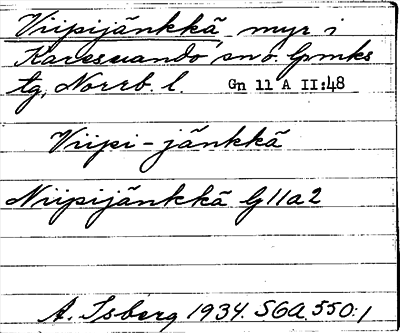 Viipijänkkä myr i
Karesuando sn o. lpmks
tg, Norrb. l. Gn 11 A II:48
Viipi-jänkkä
Niipijänkkä G11a2
A. Isberg 1934. SGA. 550:1